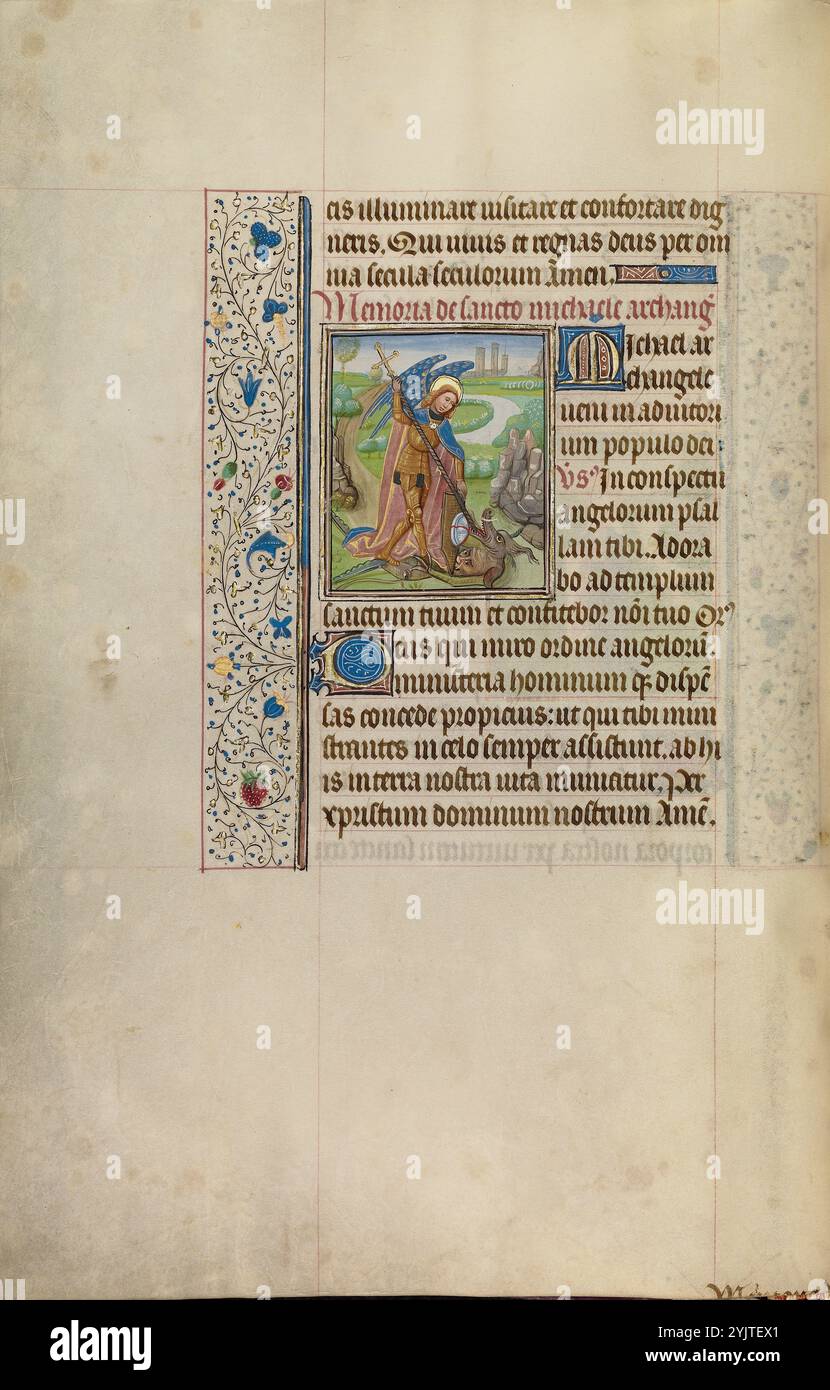 cis illuminare uisitare et confortare dig
neris. Qui uiuis et regnas deus per om
nia secula seculorum Amen.
Memoria de sancto michaele archang̃
Michael ar
changele
ueni in adiutori
um populo dei:
Vs̾ In conspectu
angelorum psal
lam tibi. Adora
bo ad templum
sanctum tuum et confitebor nõi tuo Or̾
Deus qui miro ordine angelorũ
ministeria hominum q̃ dispẽ
sas concede propicius: ut qui tibi mini
strantes in celo semper assistunt. ab hi
is in terra nostra uita muniatur. Per
xpristum dominum nostrum Amẽ.
alamy
alamy
Image ID: 2YJTEX1
www.alamy.com